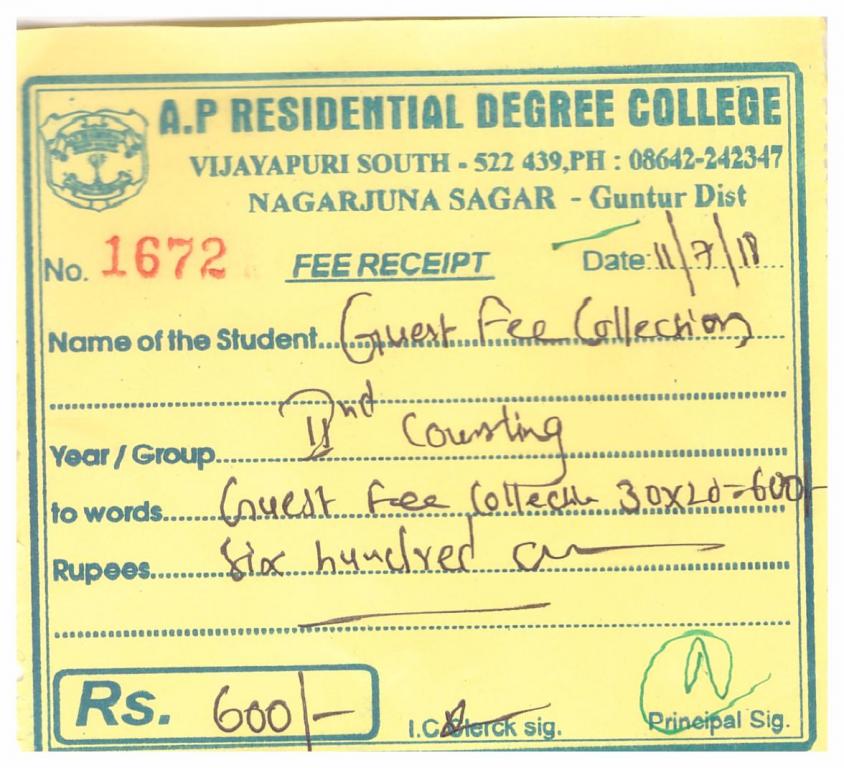 A.P RESIDENTIAL DEGREE COLLEGE
VIJAYAPURI SOUTH - 522 439,PH : 08642-242347
NAGARJUNA SAGAR - Guntur Dist
No. 1672 FEE RECEIPT Date: 11/7/18
Name of the Student Guest Fee Collection
Year / Group IInd Counsling
to words Guest Fee 30x20=600/-
Rupees Six hundred
Rs. 600/- I.C. Clerck sig. Principal Sig.